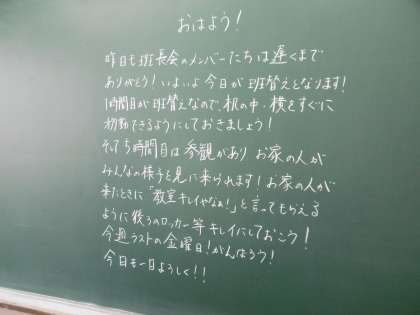 おはよう！
昨日も班長会のメンバーたちは遅くまで
ありがとう！いよいよ今日が班替えとなります！
1時間目が班替えなので、机の中・横をすぐに
移動できるようにしておきましょう！
そして5時間目は参観があり お家の人が
みんなの様子を見に来られます！お家の人が
来たときに「教室キレイやなぁ！」と言ってもらえる
ように後ろのロッカー等キレイにしておこう！
今週ラストの金曜日！がんばろう！
今日も一日よろしく！！